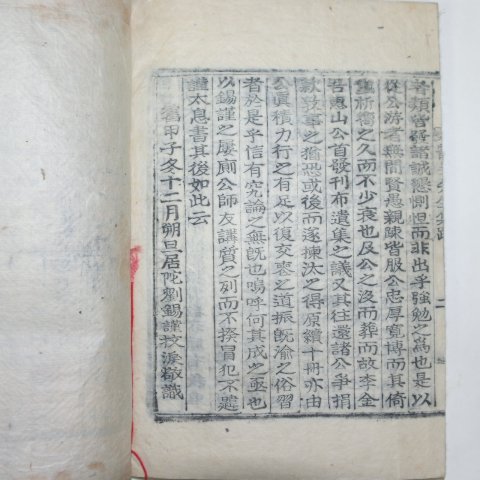 者類皆發諸誠慤惻怛而非出乎強勉之爲也是以
從公游者無間賢愚親疎皆服公忠厚寬博而其倚
重祈禱之久而不少衰也及公之沒而葬而故李金
吾惠山公首發刊布遺集之議又其往還諸公爭捐
欵敦事之猶恐或後而遂揀汰之得原續十冊亦由
公眞積力行之有足以復交喪之道振旣渝之俗習
者於是乎信有究論之無旣也嗚呼何其成之亟也
以錫謹之屢廁公師友講質之列而不揆冒犯不韙
謹太息書其後如此云
舊甲子冬十二月朔旦居陀劉錫謹抆淚敬識